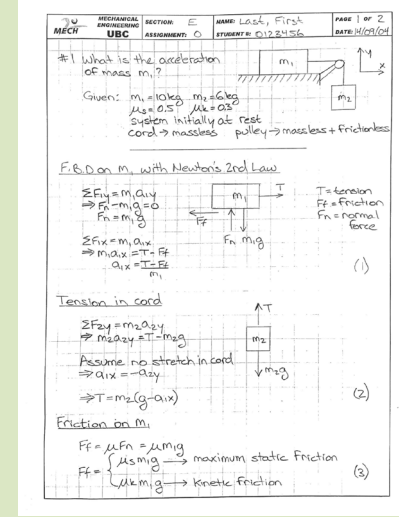 MECH
MECHANICAL ENGINEERING UBC
SECTION: E
ASSIGNMENT: 0
NAME: Last, First
STUDENT #: 0123456
PAGE 1 OF 2
DATE: 14/09/04
#1 What is the acceleration
of mass m₁?
m₁
y
x
m₂
Given: m₁=10kg m₂=6kg
μs=0.5 μk=0.3
system initially at rest
cord → massless pulley → massless + frictionless
F.B.D on m₁ with Newton's 2nd Law
ΣF₁y=m₁a₁y
⇒ Fn-m₁g=0
Fn=m₁g
m₁
T
Ff
Fn m₁g
T=tension
Ff=friction
Fn=normal
force
ΣF₁x=m₁a₁x
⇒ m₁a₁x=T-Ff
a₁x=T-Ff
m₁
(1)
Tension in cord
ΣF₂y=m₂a₂y
⇒ m₂a₂y=T-m₂g
T
m₂
m₂g
Assume no stretch in cord
⇒ a₁x=-a₂y
⇒ T=m₂(g-a₁x)
(2)
Friction on m₁
Ff=μFn=μm₁g
Ff={ μsm₁g → maximum static friction
μkm₁g → kinetic friction
(3)